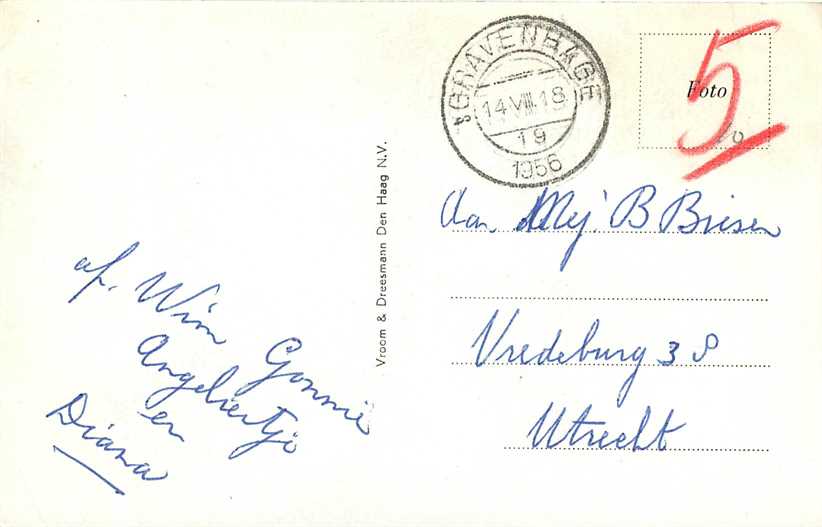 'sGRAVENHAGE
14.VIII.18
19
1956
Foto
5
Vroom & Dreesmann Den Haag N.V.
Aan Mej. B Biesen
Vredeburg 38
Utrecht
af. Wim Gonnie
Angeliertje
en
Diana